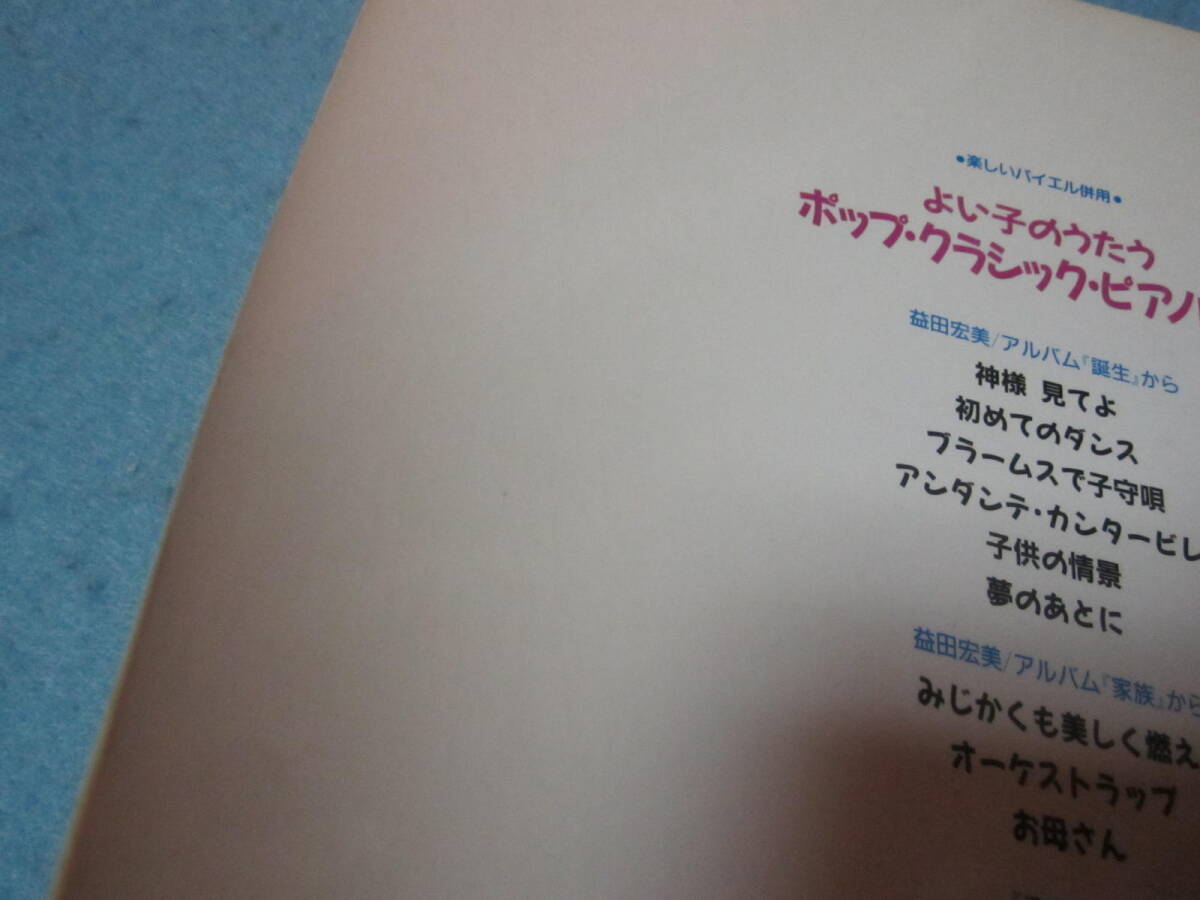 •楽しいバイエル併用•
よい子のうたう
ポップ・クラシック・ピアノ
益田宏美/アルバム『誕生』から
神様 見てよ
初めてのダンス
ブラームスで子守唄
アンダンテ・カンタービレ
子供の情景
夢のあとに
益田宏美/アルバム『家族』から
みじかくも美しく燃え
オーケストラップ
お母さん